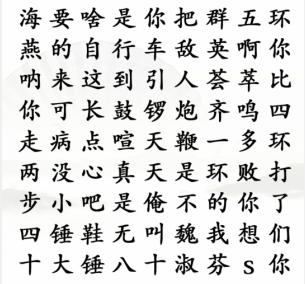 海要啥是你把群五环
燕的自行车敌英啊你
呐来这到引人荟萃比
你可长鼓锣炮齐鸣四
走病点喧天鞭一多环
两没心真天是环败打
步小吧是俺不的你了
四锤鞋无叫魏我想们
十大锤八十淑芬s你